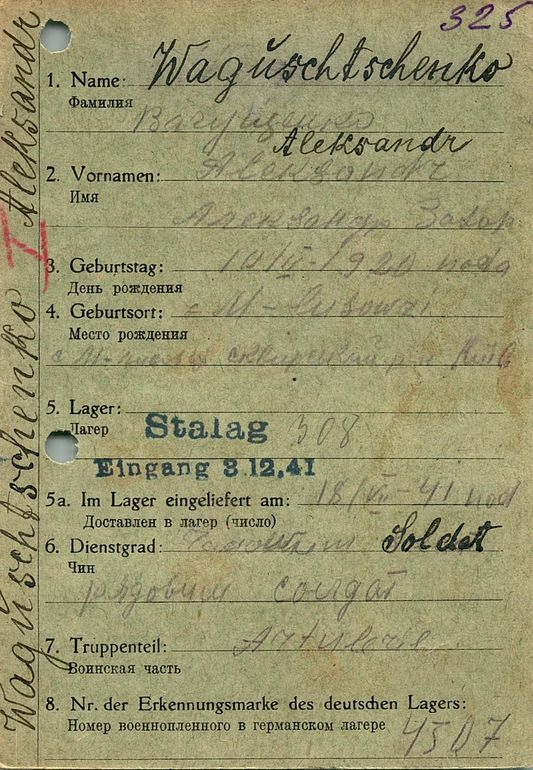 325
1. Name: Waguschtschenko
Фамилия
Вагущенко
Aleksandr
2. Vornamen: Aleksandr
Имя
Александр Захар
3. Geburtstag: 10/ 1920
День рождения
4. Geburtsort: с М-
Место рождения
с М- сквирский р-н
5. Lager:
Лагер
Stalag 308
Eingang 3.12.41
5a. Im Lager eingeliefert am: 18/VII-41
Доставлен в лагер (число)
6. Dienstgrad: Soldat
Чин
рядовым солдат
7. Truppenteil: Artilerie
Воинская часть
8. Nr. der Erkennungsmarke des deutschen Lagers:
Номер военнопленного в германском лагере
4507
Waguschtschenko I Aleksandr